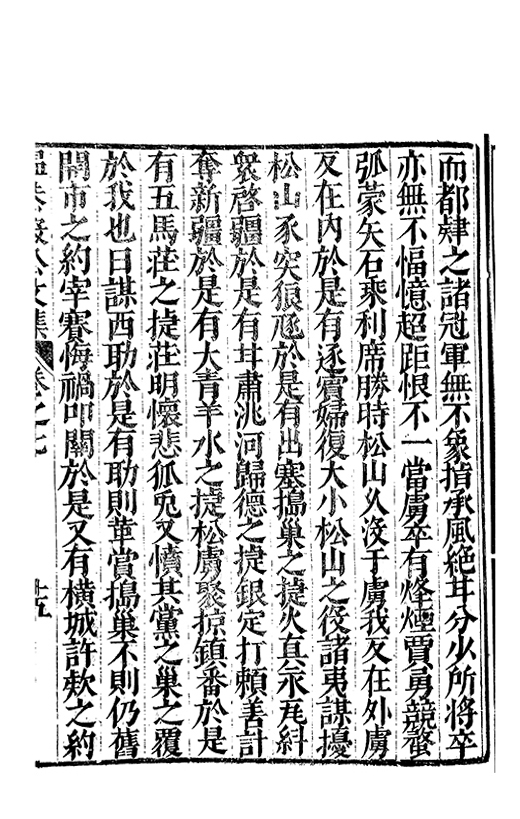 而都肄之諸冠軍無不象指承風絶甘分少所將卒
亦無不愊憶超距恨不一當虜卒有烽煙賈勇競螯
弧蒙矢石乘利席勝時松山久没于虜我反在外虜
反在内於是有逐賓婦復大小松山之役諸夷謀擾
松山豕突狼𨒫於是有出塞搗巢之捷火真永瓦糾
衆啓疆於是有甘肅洮河歸德之捷銀定打賴善計
奪新疆於是有大青羊水之捷松虜聚掠鎮番於是
有五馬莊之捷莊明懷悲狐兎又憤其黨之巢之覆
於我也曰謀西助於是有助則革賞搗巢不則仍舊
開市之約宰賽悔禍叩關於是又有横城許欵之約
文集 卷之七 十五